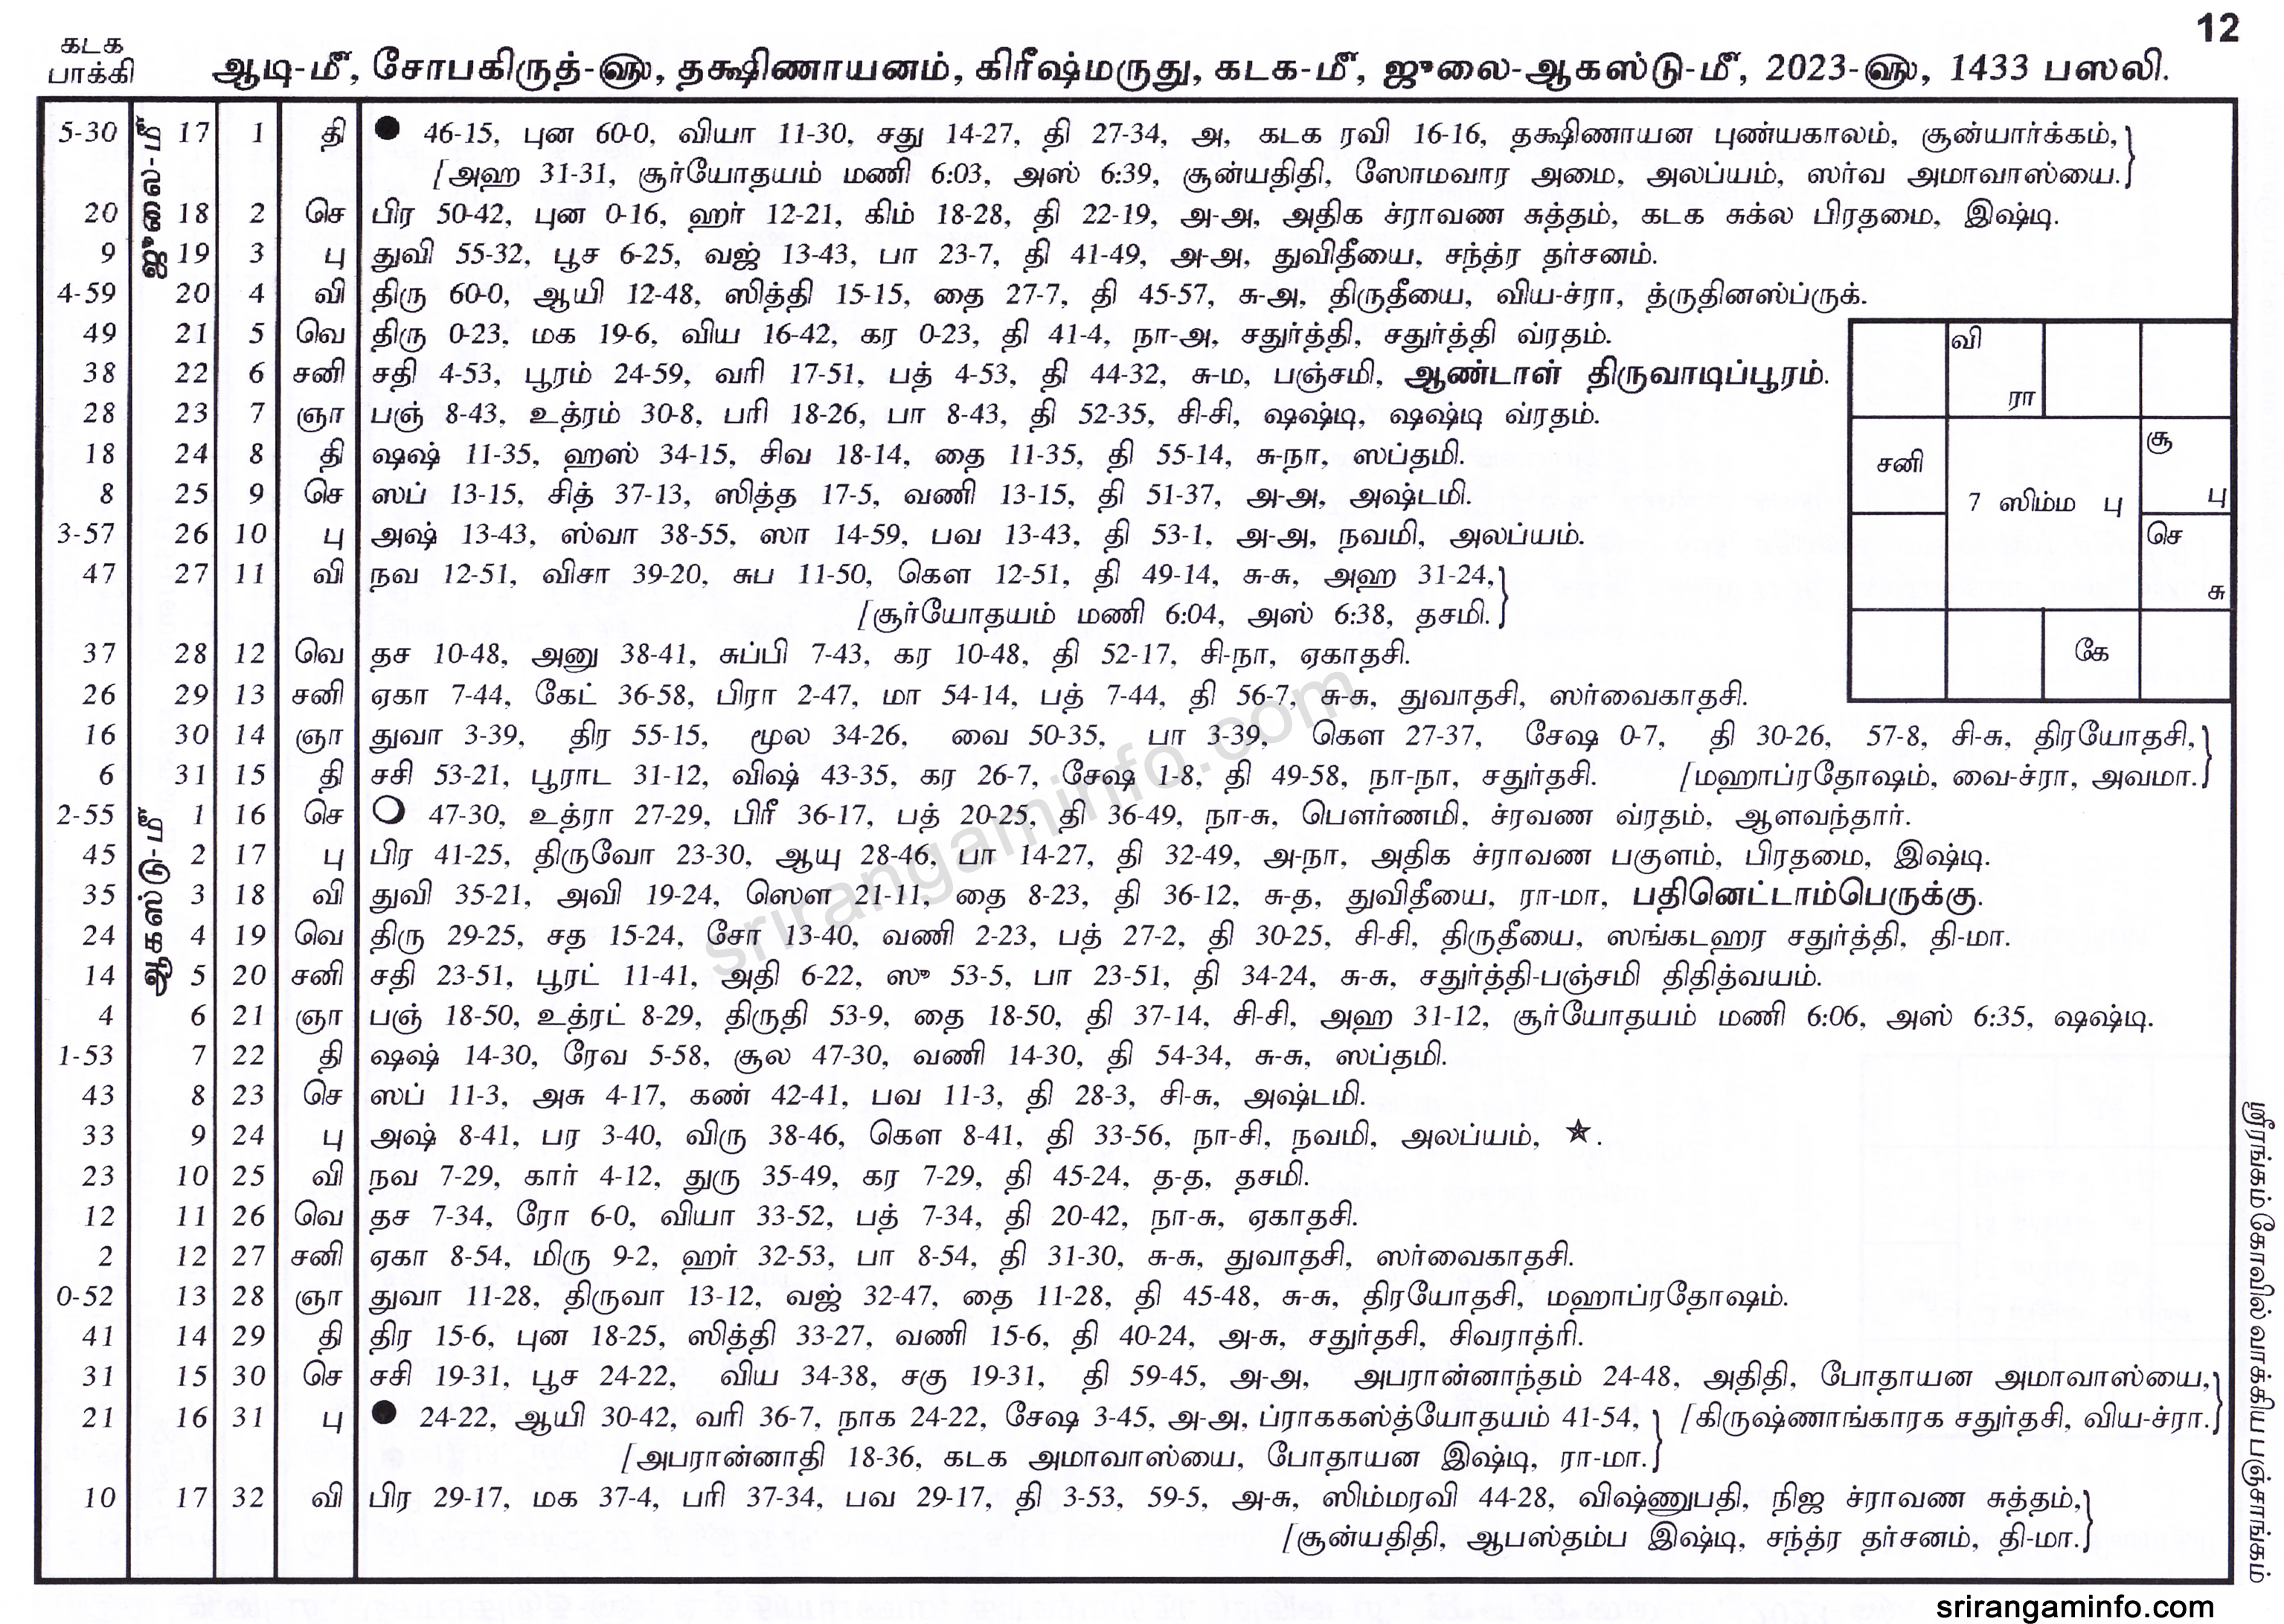 12
கடக
பாக்கி
ஆடி-மீ, சோபகிருத்-௵, தக்ஷிணாயனம், கிரீஷ்மருது, கடக-மீ, ஜுலை-ஆகஸ்டு-மீ, 2023-௵, 1433 பஸலி.
ஜுலை-மீ
5-30 17 1 தி ● 46-15, புன 60-0, வியா 11-30, சது 14-27, தி 27-34, அ, கடக ரவி 16-16, தக்ஷிணாயன புண்யகாலம், சூன்யார்க்கம்,}
[அஹ 31-31, சூர்யோதயம் மணி 6:03, அஸ் 6:39, சூன்யதிதி, ஸோமவார அமை, அலப்யம், ஸர்வ அமாவாஸ்யை.}
20 18 2 செ பிர 50-42, புன 0-16, ஹர் 12-21, கிம் 18-28, தி 22-19, அ-அ, அதிக ச்ராவண சுத்தம், கடக சுக்ல பிரதமை, இஷ்டி.
9 19 3 பு துவி 55-32, பூச 6-25, வஜ் 13-43, பா 23-7, தி 41-49, அ-அ, துவிதீயை, சந்த்ர தர்சனம்.
4-59 20 4 வி திரு 60-0, ஆயி 12-48, ஸித்தி 15-15, தை 27-7, தி 45-57, சு-அ, திருதீயை, விய-ச்ரா, த்ருதினஸ்ப்ருக்.
49 21 5 வெ திரு 0-23, மக 19-6, விய 16-42, கர 0-23, தி 41-4, நா-அ, சதுர்த்தி, சதுர்த்தி வ்ரதம்.
38 22 6 சனி சதி 4-53, பூரம் 24-59, வரி 17-51, பத் 4-53, தி 44-32, சு-ம, பஞ்சமி, ஆண்டாள் திருவாடிப்பூரம்.
28 23 7 ஞா பஞ் 8-43, உத்ரம் 30-8, பரி 18-26, பா 8-43, தி 52-35, சி-சி, ஷஷ்டி, ஷஷ்டி வ்ரதம்.
18 24 8 தி ஷஷ் 11-35, ஹஸ் 34-15, சிவ 18-14, தை 11-35, தி 55-14, சு-நா, ஸப்தமி.
8 25 9 செ ஸப் 13-15, சித் 37-13, ஸித்த 17-5, வணி 13-15, தி 51-37, அ-அ, அஷ்டமி.
3-57 26 10 பு அஷ் 13-43, ஸ்வா 38-55, ஸா 14-59, பவ 13-43, தி 53-1, அ-அ, நவமி, அலப்யம்.
47 27 11 வி நவ 12-51, விசா 39-20, சுப 11-50, கௌ 12-51, தி 49-14, சு-சு, அஹ 31-24,}
[சூர்யோதயம் மணி 6:04, அஸ் 6:38, தசமி.}
37 28 12 வெ தச 10-48, அனு 38-41, சுப்பி 7-43, கர 10-48, தி 52-17, சி-நா, ஏகாதசி.
26 29 13 சனி ஏகா 7-44, கேட் 36-58, பிரா 2-47, மா 54-14, பத் 7-44, தி 56-7, சு-சு, துவாதசி, ஸர்வைகாதசி.
வி
ரா
சனி
சூ
பு
7 ஸிம்ம பு
செ
சு
கே
16 30 14 ஞா துவா 3-39, திர 55-15, மூல 34-26, வை 50-35, பா 3-39, கௌ 27-37, சேஷ 0-7, தி 30-26, 57-8, சி-சு, திரயோதசி,}
6 31 15 தி சசி 53-21, பூராட 31-12, விஷ் 43-35, கர 26-7, சேஷ 1-8, தி 49-58, நா-நா, சதுர்தசி. [மஹாப்ரதோஷம், வை-ச்ரா, அவமா.}
ஆகஸ்டு-மீ
2-55 1 16 செ ○ 47-30, உத்ரா 27-29, பிரீ 36-17, பத் 20-25, தி 36-49, நா-சு, பௌர்ணமி, ச்ரவண வ்ரதம், ஆளவந்தார்.
45 2 17 பு பிர 41-25, திருவோ 23-30, ஆயு 28-46, பா 14-27, தி 32-49, அ-நா, அதிக ச்ராவண பகுளம், பிரதமை, இஷ்டி.
35 3 18 வி துவி 35-21, அவி 19-24, ஸௌ 21-11, தை 8-23, தி 36-12, சு-த, துவிதீயை, ரா-மா, பதினெட்டாம்பெருக்கு.
24 4 19 வெ திரு 29-25, சத 15-24, சோ 13-40, வணி 2-23, பத் 27-2, தி 30-25, சி-சி, திருதீயை, ஸங்கடஹர சதுர்த்தி, தி-மா.
14 5 20 சனி சதி 23-51, பூரட் 11-41, அதி 6-22, ஸு 53-5, பா 23-51, தி 34-24, சு-சு, சதுர்த்தி-பஞ்சமி திதித்வயம்.
4 6 21 ஞா பஞ் 18-50, உத்ரட் 8-29, திருதி 53-9, தை 18-50, தி 37-14, சி-சி, அஹ 31-12, சூர்யோதயம் மணி 6:06, அஸ் 6:35, ஷஷ்டி.
1-53 7 22 தி ஷஷ் 14-30, ரேவ 5-58, சூல 47-30, வணி 14-30, தி 54-34, சு-சு, ஸப்தமி.
43 8 23 செ ஸப் 11-3, அசு 4-17, கண் 42-41, பவ 11-3, தி 28-3, சி-சு, அஷ்டமி.
33 9 24 பு அஷ் 8-41, பர 3-40, விரு 38-46, கௌ 8-41, தி 33-56, நா-சி, நவமி, அலப்யம், ☆.
23 10 25 வி நவ 7-29, கார் 4-12, துரு 35-49, கர 7-29, தி 45-24, த-த, தசமி.
12 11 26 வெ தச 7-34, ரோ 6-0, வியா 33-52, பத் 7-34, தி 20-42, நா-சு, ஏகாதசி.
2 12 27 சனி ஏகா 8-54, மிரு 9-2, ஹர் 32-53, பா 8-54, தி 31-30, சு-சு, துவாதசி, ஸர்வைகாதசி.
0-52 13 28 ஞா துவா 11-28, திருவா 13-12, வஜ் 32-47, தை 11-28, தி 45-48, சு-சு, திரயோதசி, மஹாப்ரதோஷம்.
41 14 29 தி திர 15-6, புன 18-25, ஸித்தி 33-27, வணி 15-6, தி 40-24, அ-சு, சதுர்தசி, சிவராத்ரி.
31 15 30 செ சசி 19-31, பூச 24-22, விய 34-38, சகு 19-31, தி 59-45, அ-அ, அபரான்னாந்தம் 24-48, அதிதி, போதாயன அமாவாஸ்யை,}
21 16 31 பு ● 24-22, ஆயி 30-42, வரி 36-7, நாக 24-22, சேஷ 3-45, அ-அ, ப்ராககஸ்த்யோதயம் 41-54,} [கிருஷ்ணாங்காரக சதுர்தசி, விய-ச்ரா.}
[அபரான்னாதி 18-36, கடக அமாவாஸ்யை, போதாயன இஷ்டி, ரா-மா.}
10 17 32 வி பிர 29-17, மக 37-4, பரி 37-34, பவ 29-17, தி 3-53, 59-5, அ-சு, ஸிம்மரவி 44-28, விஷ்ணுபதி, நிஜ ச்ராவண சுத்தம்,}
[சூன்யதிதி, ஆபஸ்தம்ப இஷ்டி, சந்த்ர தர்சனம், தி-மா.}
ஸ்ரீரங்கம் கோவில் வாக்கிய பஞ்சாங்கம்
srirangaminfo.com
srirangaminfo.com